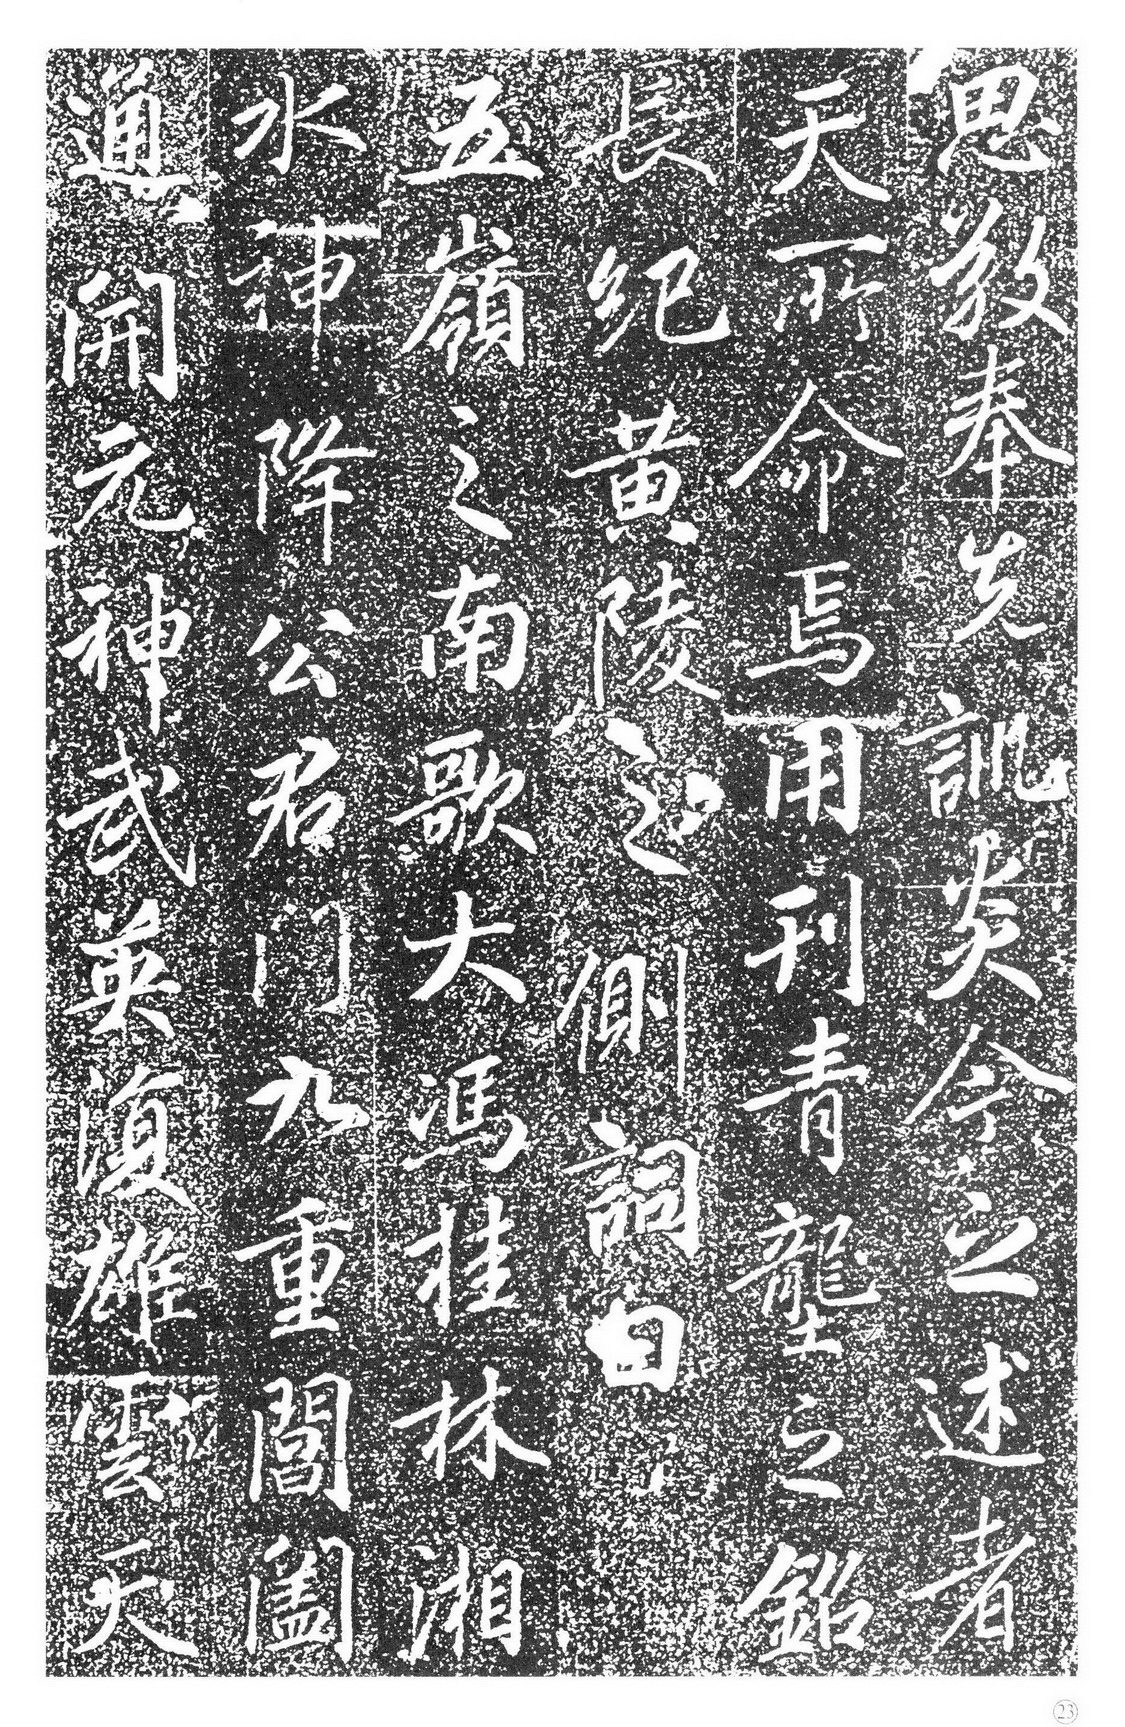 思教奉先訓炎今之述者
天所命焉用刊青壟之銘
長紀黃陵之側詞曰
五嶺之南歌大馮桂林湘
水神降公君門九重閶闔
通開元神武英復雄雲天
23